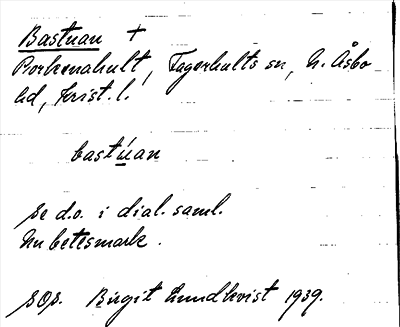 Bastuan +
Porkenahult, Fagerhults sn, N. Åsbo
hd, Krist. l.
bastúan
se d.o. i dial. saml.
Nu betesmark.
SOP. Birgit Lundkvist 1939.